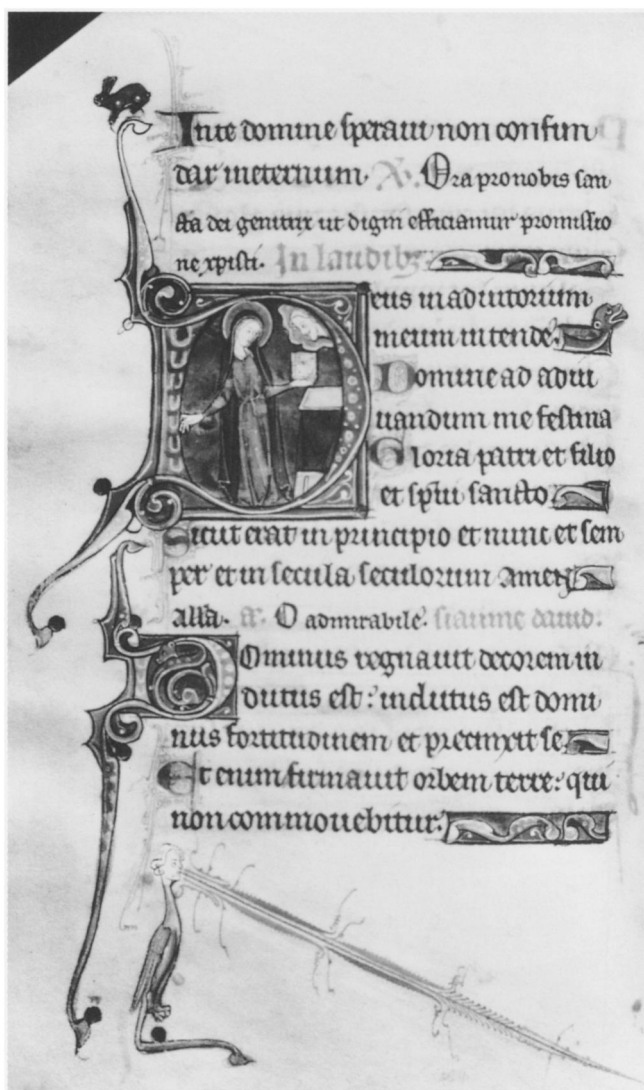 In te domine speravi non confun
dar in eternum. V. Ora pro nobis san
cta dei genitrix ut digni efficiamur promissio
ne xpisti. In laudibz.
Deus in adiutorium
meum intende.
Domine ad adiu
uandum me festina
Gloria patri et filio
et spui sancto.
Sicut erat in principio et nunc et sem
per et in secula seculorum amen.
alla. a. O admirabile. siaume dauid.
Dominus regnauit decorem in
dutus est: indutus est domi
nus fortitudinem et precinxit se.
Et enim firmauit orbem terre: qui
non commouebitur.